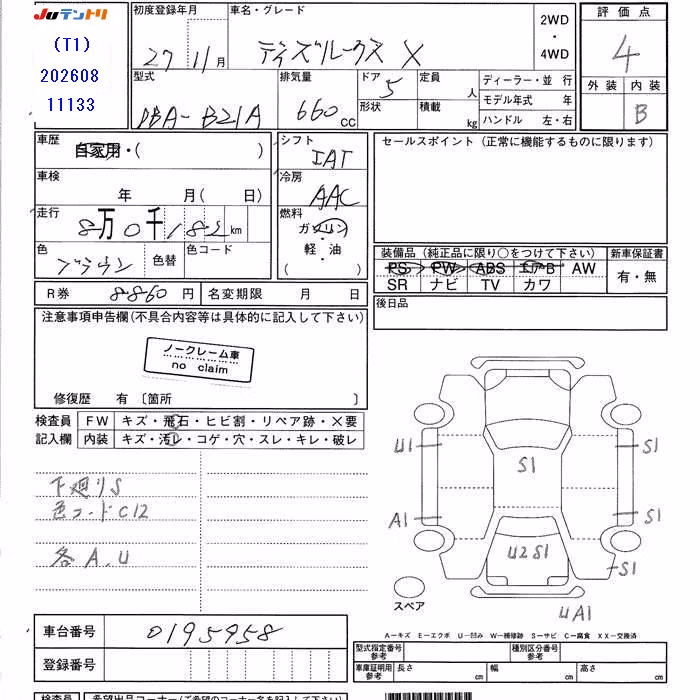 JUテントリ
(T1)
202608
11133
初度登録年月
27 11月
車名・グレード
デイズルークス X
2WD
・
4WD
評価点
4
外装 内装
B
型式
DBA-B21A
排気量
660 CC
ドア 5
形状
定員 人
積載 kg
ディーラー・並 行
モデル年式 年
ハンドル 左・右
車歴
自家用・( )
シフト
IAT
セールスポイント(正常に機能するものに限ります)
車検
年 月( 日)
冷房
AAC
走行
8万0千182km
燃料
ガソリン
軽・油
( )
色
ブラウン
色替
色コード
装備品(純正品に限り○をつけて下さい)
PS PW ABS エアB AW
SR ナビ TV カワ
新車保証書
有・無
R券 8860円
名変期限 月 日
後日品
注意事項申告欄(不具合内容等は具体的に記入して下さい)
ノークレーム車
no claim
修復歴 有 〔箇所 〕
検査員
記入欄
FW キズ・飛石・ヒビ割・リペア跡・×要
内装 キズ・汚レ・コゲ・穴・スレ・キレ・破レ
下廻りS
色コードC12
各A.U
U1
S1
S1
A1
S1
U2 S1
S1
UA1
スペア
A−キズ E−エクボ U−凹み W−補修跡 S−サビ C−腐食 XX−交換済
車台番号 0195958
登録番号
型式指定番号
参考
種別区分番号
参考
車庫証明用
参考
長さ cm
幅 cm
高さ cm
検査員
希望出品コーナー(ご希望のコーナー名を記入して下さい)